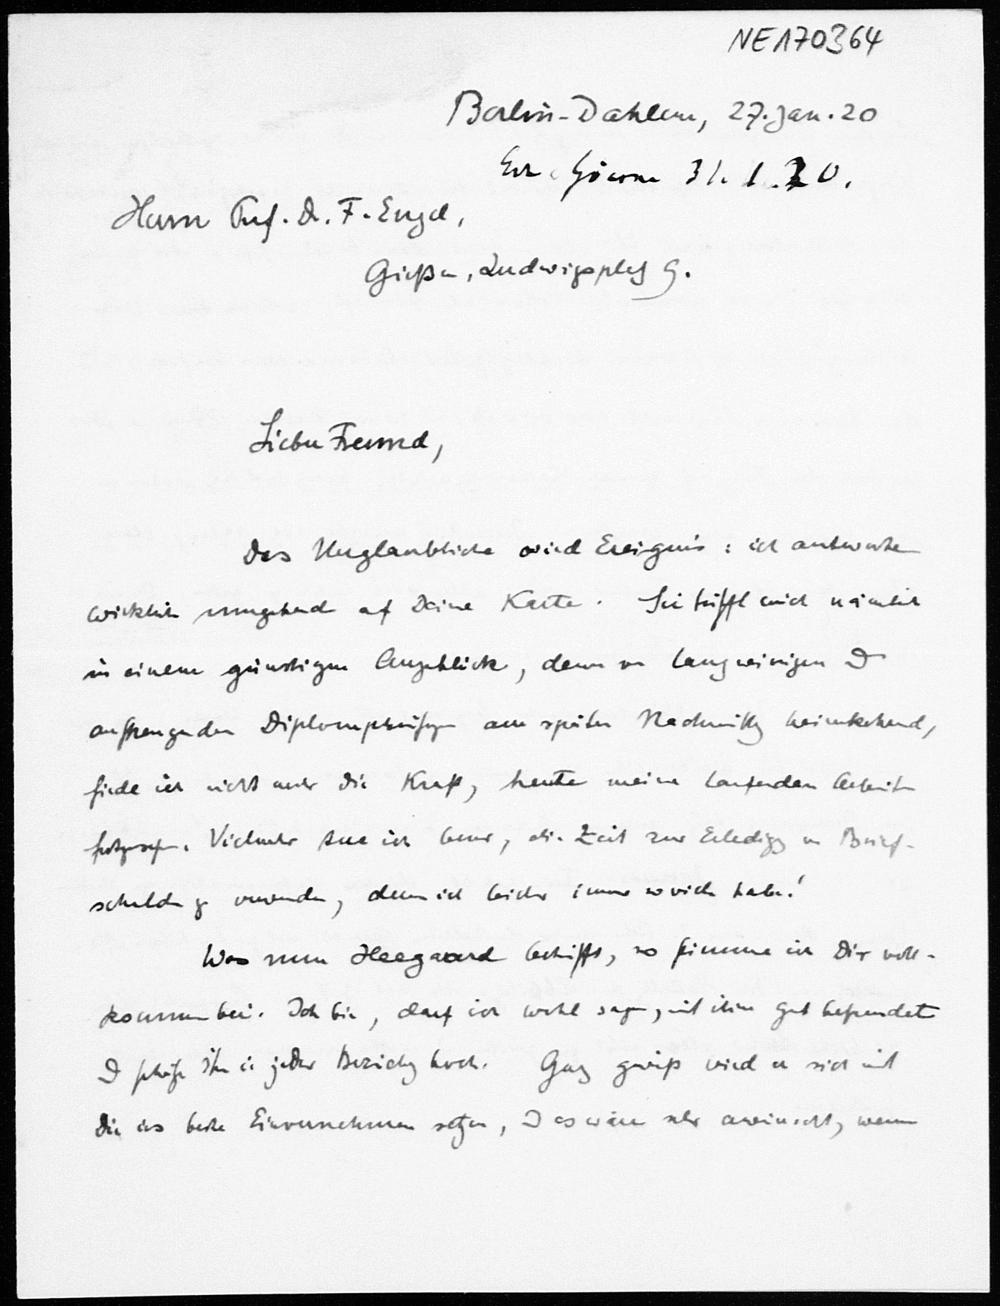 NE170364
Berlin-Dahlem, 27. Jan. 20
31. 1. 20.
Herrn Prof. Dr. F. Engel,
Gießen, Ludwigsplatz 9.
Lieber Freund,
Das Unglaubliche wird Ereignis: ich antworte
wirklich umgehend auf Deine Karte. Sie trifft mich nämlich
in einem günstigen Augenblick, denn von langweiligen
anstrengenden Diplomprüfungen am späten Nachmittag heimkehrend,
finde ich nicht mehr die Kraft, heute meine laufenden Arbeiten
fortzusetzen. Vielmehr tue ich besser, die Zeit zur Erledigung von Brief-
schulden zu verwenden, deren ich leider immer so viele habe!
Was nun Heegaard betrifft, so stimme ich Dir voll-
kommen bei. Ich bin, darf ich wohl sagen, mit ihm gut befreundet
schätze ihn in jeder Beziehung hoch. Ganz gewiß wird er sich mit
Dir ins beste Einvernehmen setzen, es wäre sehr erwünscht, wenn